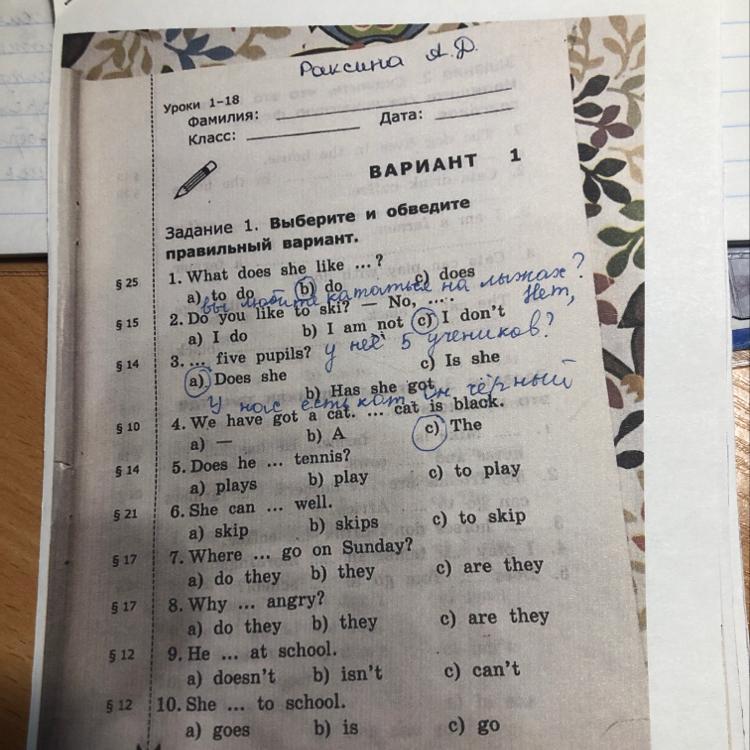 Раксина А.Д.
Уроки 1–18
Фамилия:
Класс: Дата:
ВАРИАНТ 1
Задание 1. Выберите и обведите
правильный вариант.
§ 25 1. What does she like ...?
a) to do b) do c) does
вы любите кататься на лыжах?
§ 15 2. Do you like to ski? — No, ... . Нет,
a) I do b) I am not c) I don't
§ 14 3. ... five pupils? у неё 5 учеников?
a) Does she b) Has she got c) Is she
У нас есть кот он чёрный
§ 10 4. We have got a cat. ... cat is black.
a) — b) A c) The
§ 14 5. Does he ... tennis?
a) plays b) play c) to play
§ 21 6. She can ... well.
a) skip b) skips c) to skip
§ 17 7. Where ... go on Sunday?
a) do they b) they c) are they
§ 17 8. Why ... angry?
a) do they b) they c) are they
§ 12 9. He ... at school.
a) doesn't b) isn't c) can't
§ 12 10. She ... to school.
a) goes b) is c) go